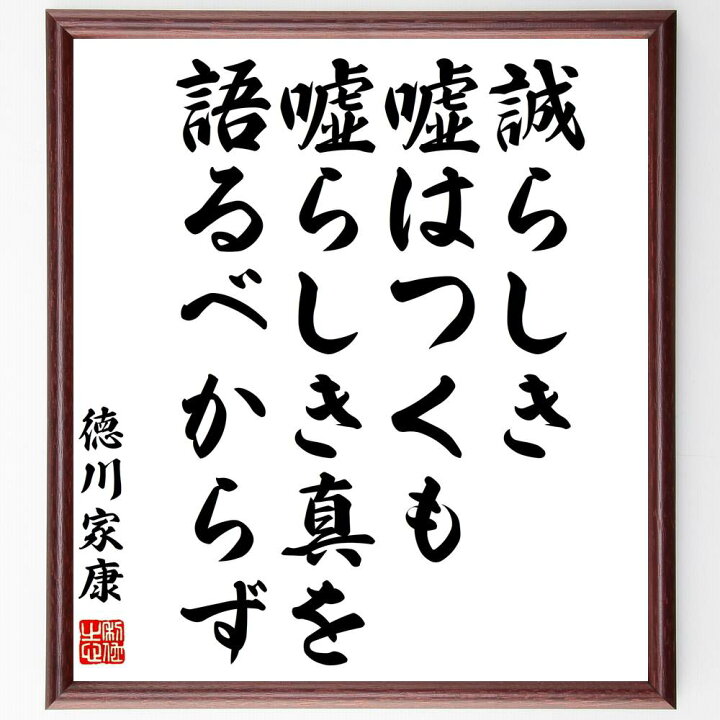 誠らしき
嘘はつくも
嘘らしき真を
語るべからず
徳川家康